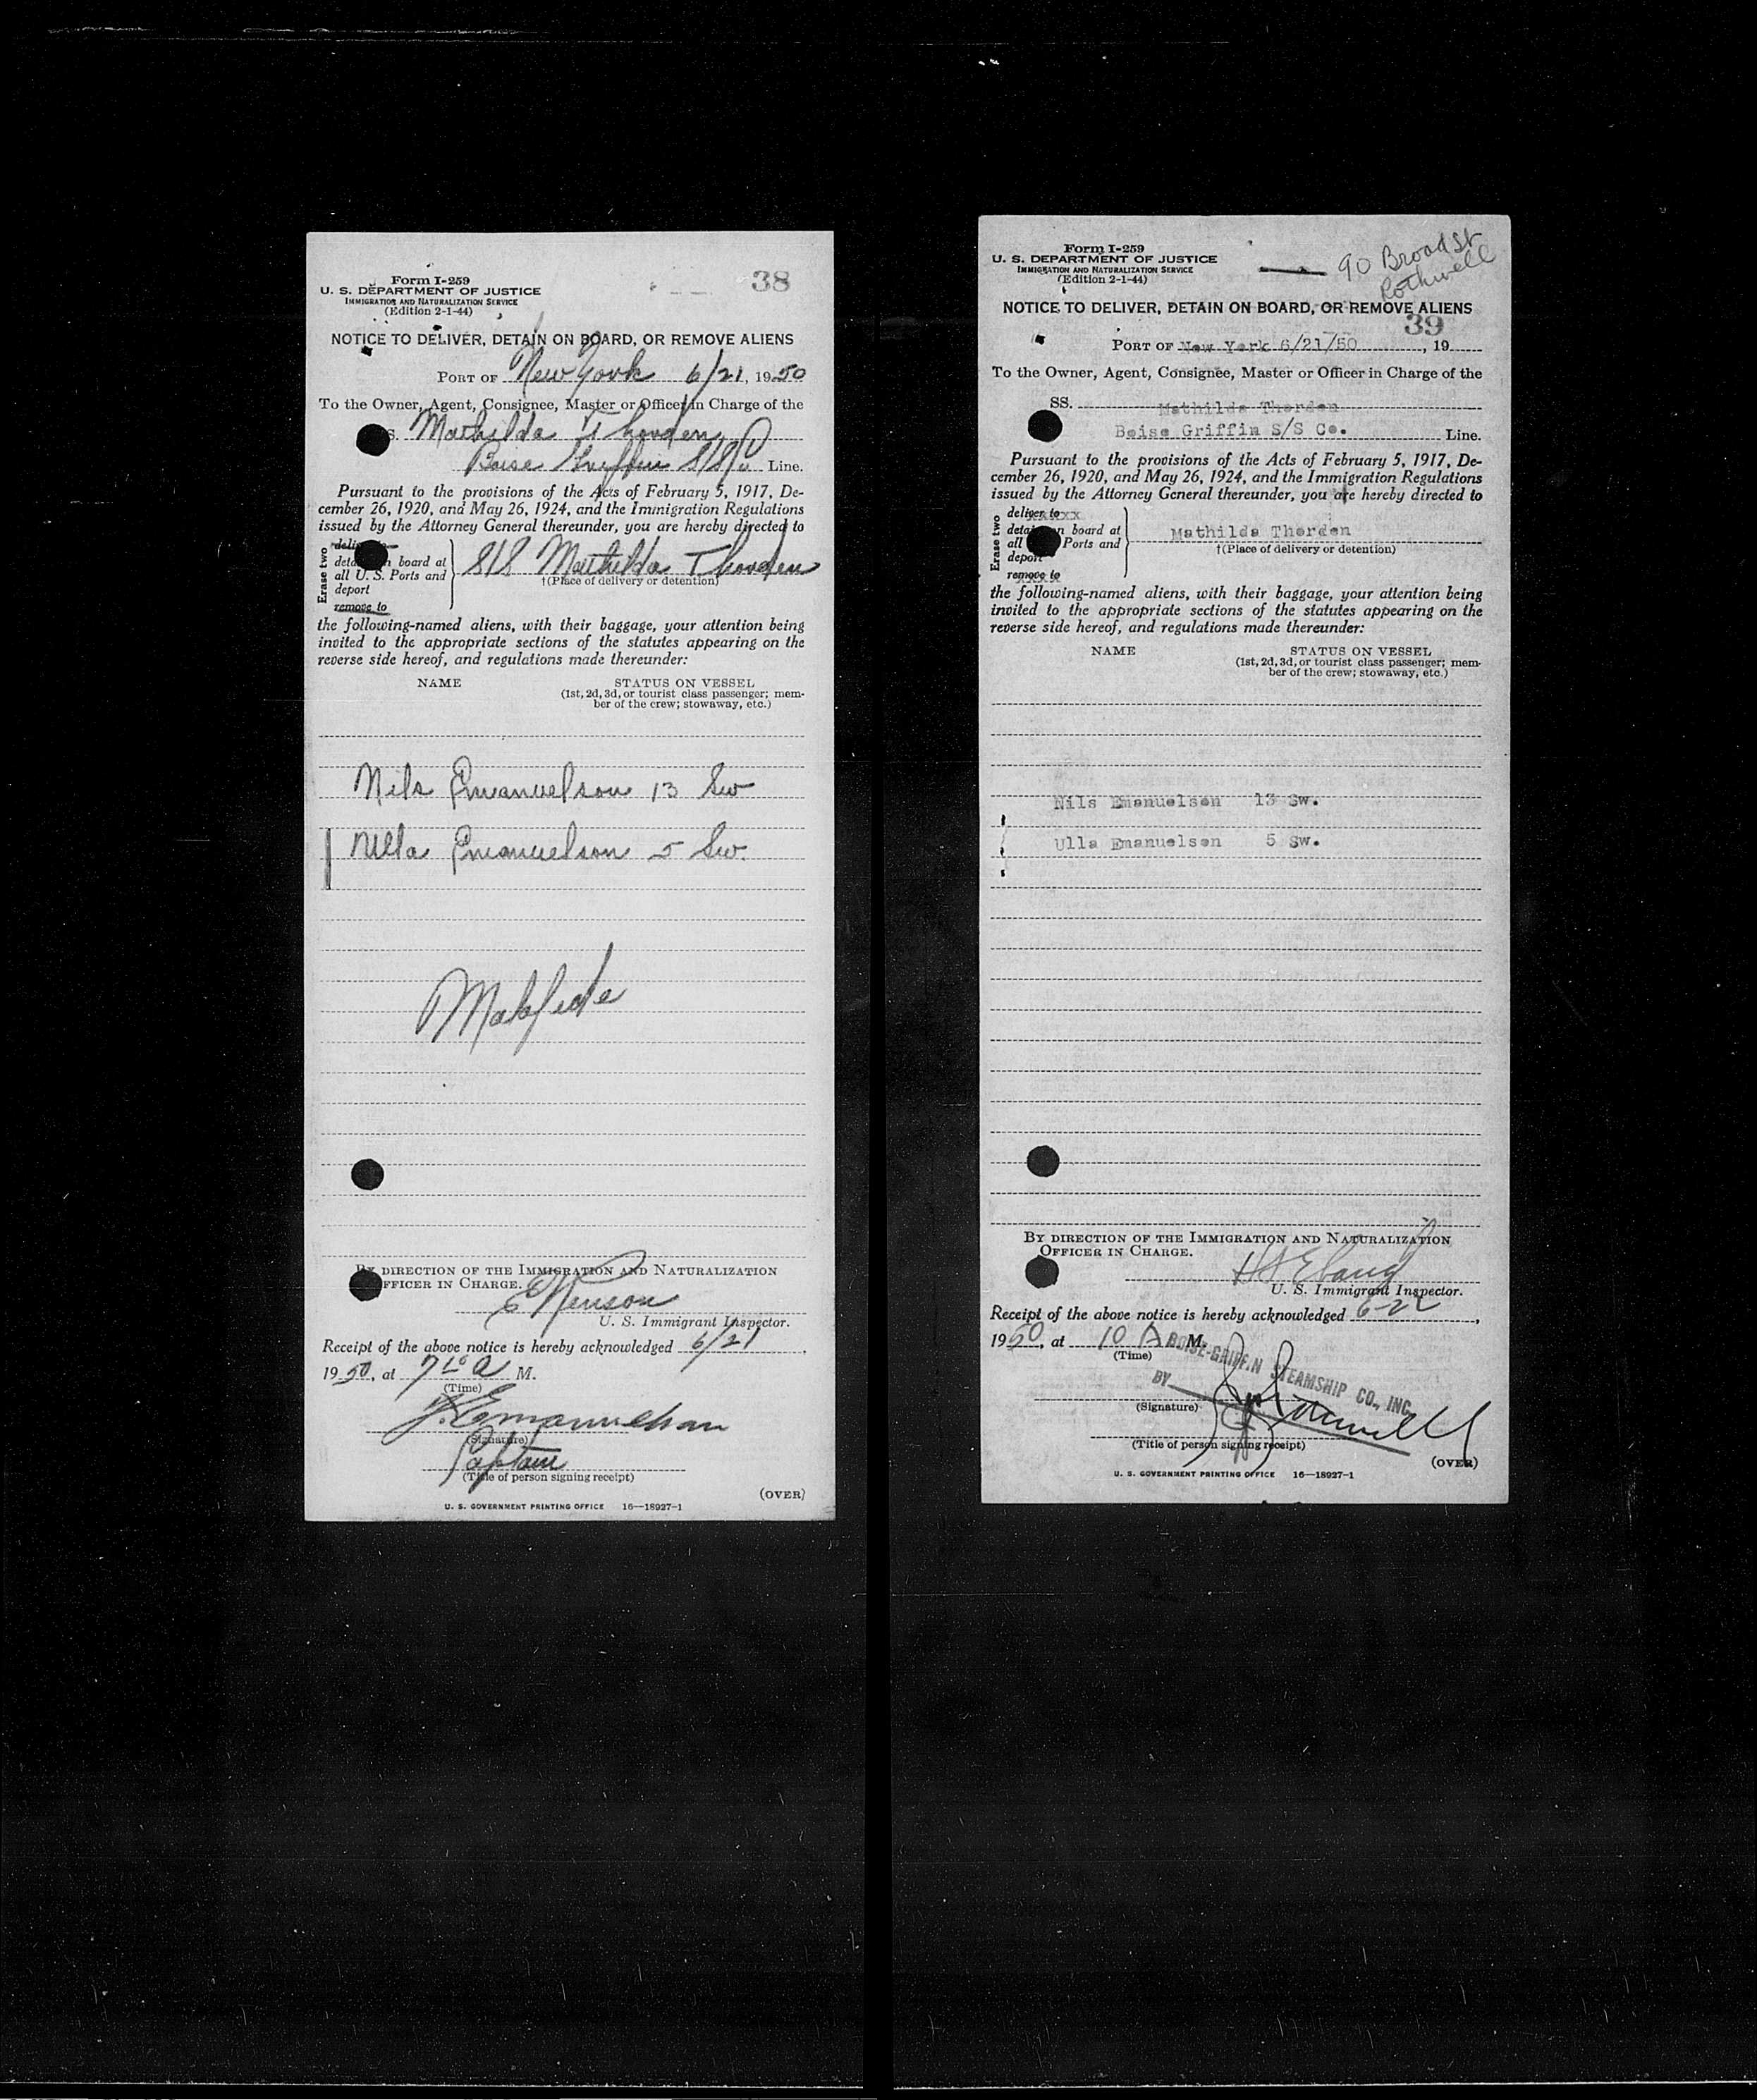 38
Form I-259
U. S. DEPARTMENT OF JUSTICE
IMMIGRATION AND NATURALIZATION SERVICE
(Edition 2-1-44)
NOTICE TO DELIVER, DETAIN ON BOARD, OR REMOVE ALIENS
PORT OF New York 6/21, 1950
To the Owner, Agent, Consignee, Master or Officer in Charge of the
S. Mathilda Thorden
Boise Griffin S/S Co Line.
Pursuant to the provisions of the Acts of February 5, 1917, De-
cember 26, 1920, and May 26, 1924, and the Immigration Regulations
issued by the Attorney General thereunder, you are hereby directed to
Erase two
board at
all U. S. Ports and
deport
remove to
S/S Mathilda Thorden
†(Place of delivery or detention)
the following-named aliens, with their baggage, your attention being
invited to the appropriate sections of the statutes appearing on the
reverse side hereof, and regulations made thereunder:
NAME STATUS ON VESSEL
(1st, 2d, 3d, or tourist class passenger; mem-
ber of the crew; stowaway, etc.)
Nils Emanuelson 13 Sw
Ulla Emanuelson 5 Sw.
Malafide
BY DIRECTION OF THE IMMIGRATION AND NATURALIZATION
OFFICER IN CHARGE.
U. S. Immigrant Inspector.
Receipt of the above notice is hereby acknowledged 6/21,
1950, at A M.
(Time)
J. Emanuelson
(Signature)
Captain
(Title of person signing receipt)
(OVER)
U. S. GOVERNMENT PRINTING OFFICE 16—18927-1
90 Broad St
Rothwell
Form I-259
U. S. DEPARTMENT OF JUSTICE
IMMIGRATION AND NATURALIZATION SERVICE
(Edition 2-1-44)
NOTICE TO DELIVER, DETAIN ON BOARD, OR REMOVE ALIENS
39
PORT OF New York 6/21/50, 19
To the Owner, Agent, Consignee, Master or Officer in Charge of the
SS. Mathilda Thorden
Boise Griffin S/S Co. Line.
Pursuant to the provisions of the Acts of February 5, 1917, De-
cember 26, 1920, and May 26, 1924, and the Immigration Regulations
issued by the Attorney General thereunder, you are hereby directed to
Erase two
deliver to
board at
all Ports and
deport
remove to
Mathilda Thorden
†(Place of delivery or detention)
the following-named aliens, with their baggage, your attention being
invited to the appropriate sections of the statutes appearing on the
reverse side hereof, and regulations made thereunder:
NAME STATUS ON VESSEL
(1st, 2d, 3d, or tourist class passenger; mem-
ber of the crew; stowaway, etc.)
Nils Emanuelson 13 Sw.
Ulla Emanuelson 5 Sw.
BY DIRECTION OF THE IMMIGRATION AND NATURALIZATION
OFFICER IN CHARGE.
U. S. Immigrant Inspector.
Receipt of the above notice is hereby acknowledged 6-22,
1950, at 10 A M.
(Time)
BOISE-GRIFFIN STEAMSHIP CO., INC.
BY
(Signature)
(Title of person signing receipt)
(OVER)
U. S. GOVERNMENT PRINTING OFFICE 16—18927-1